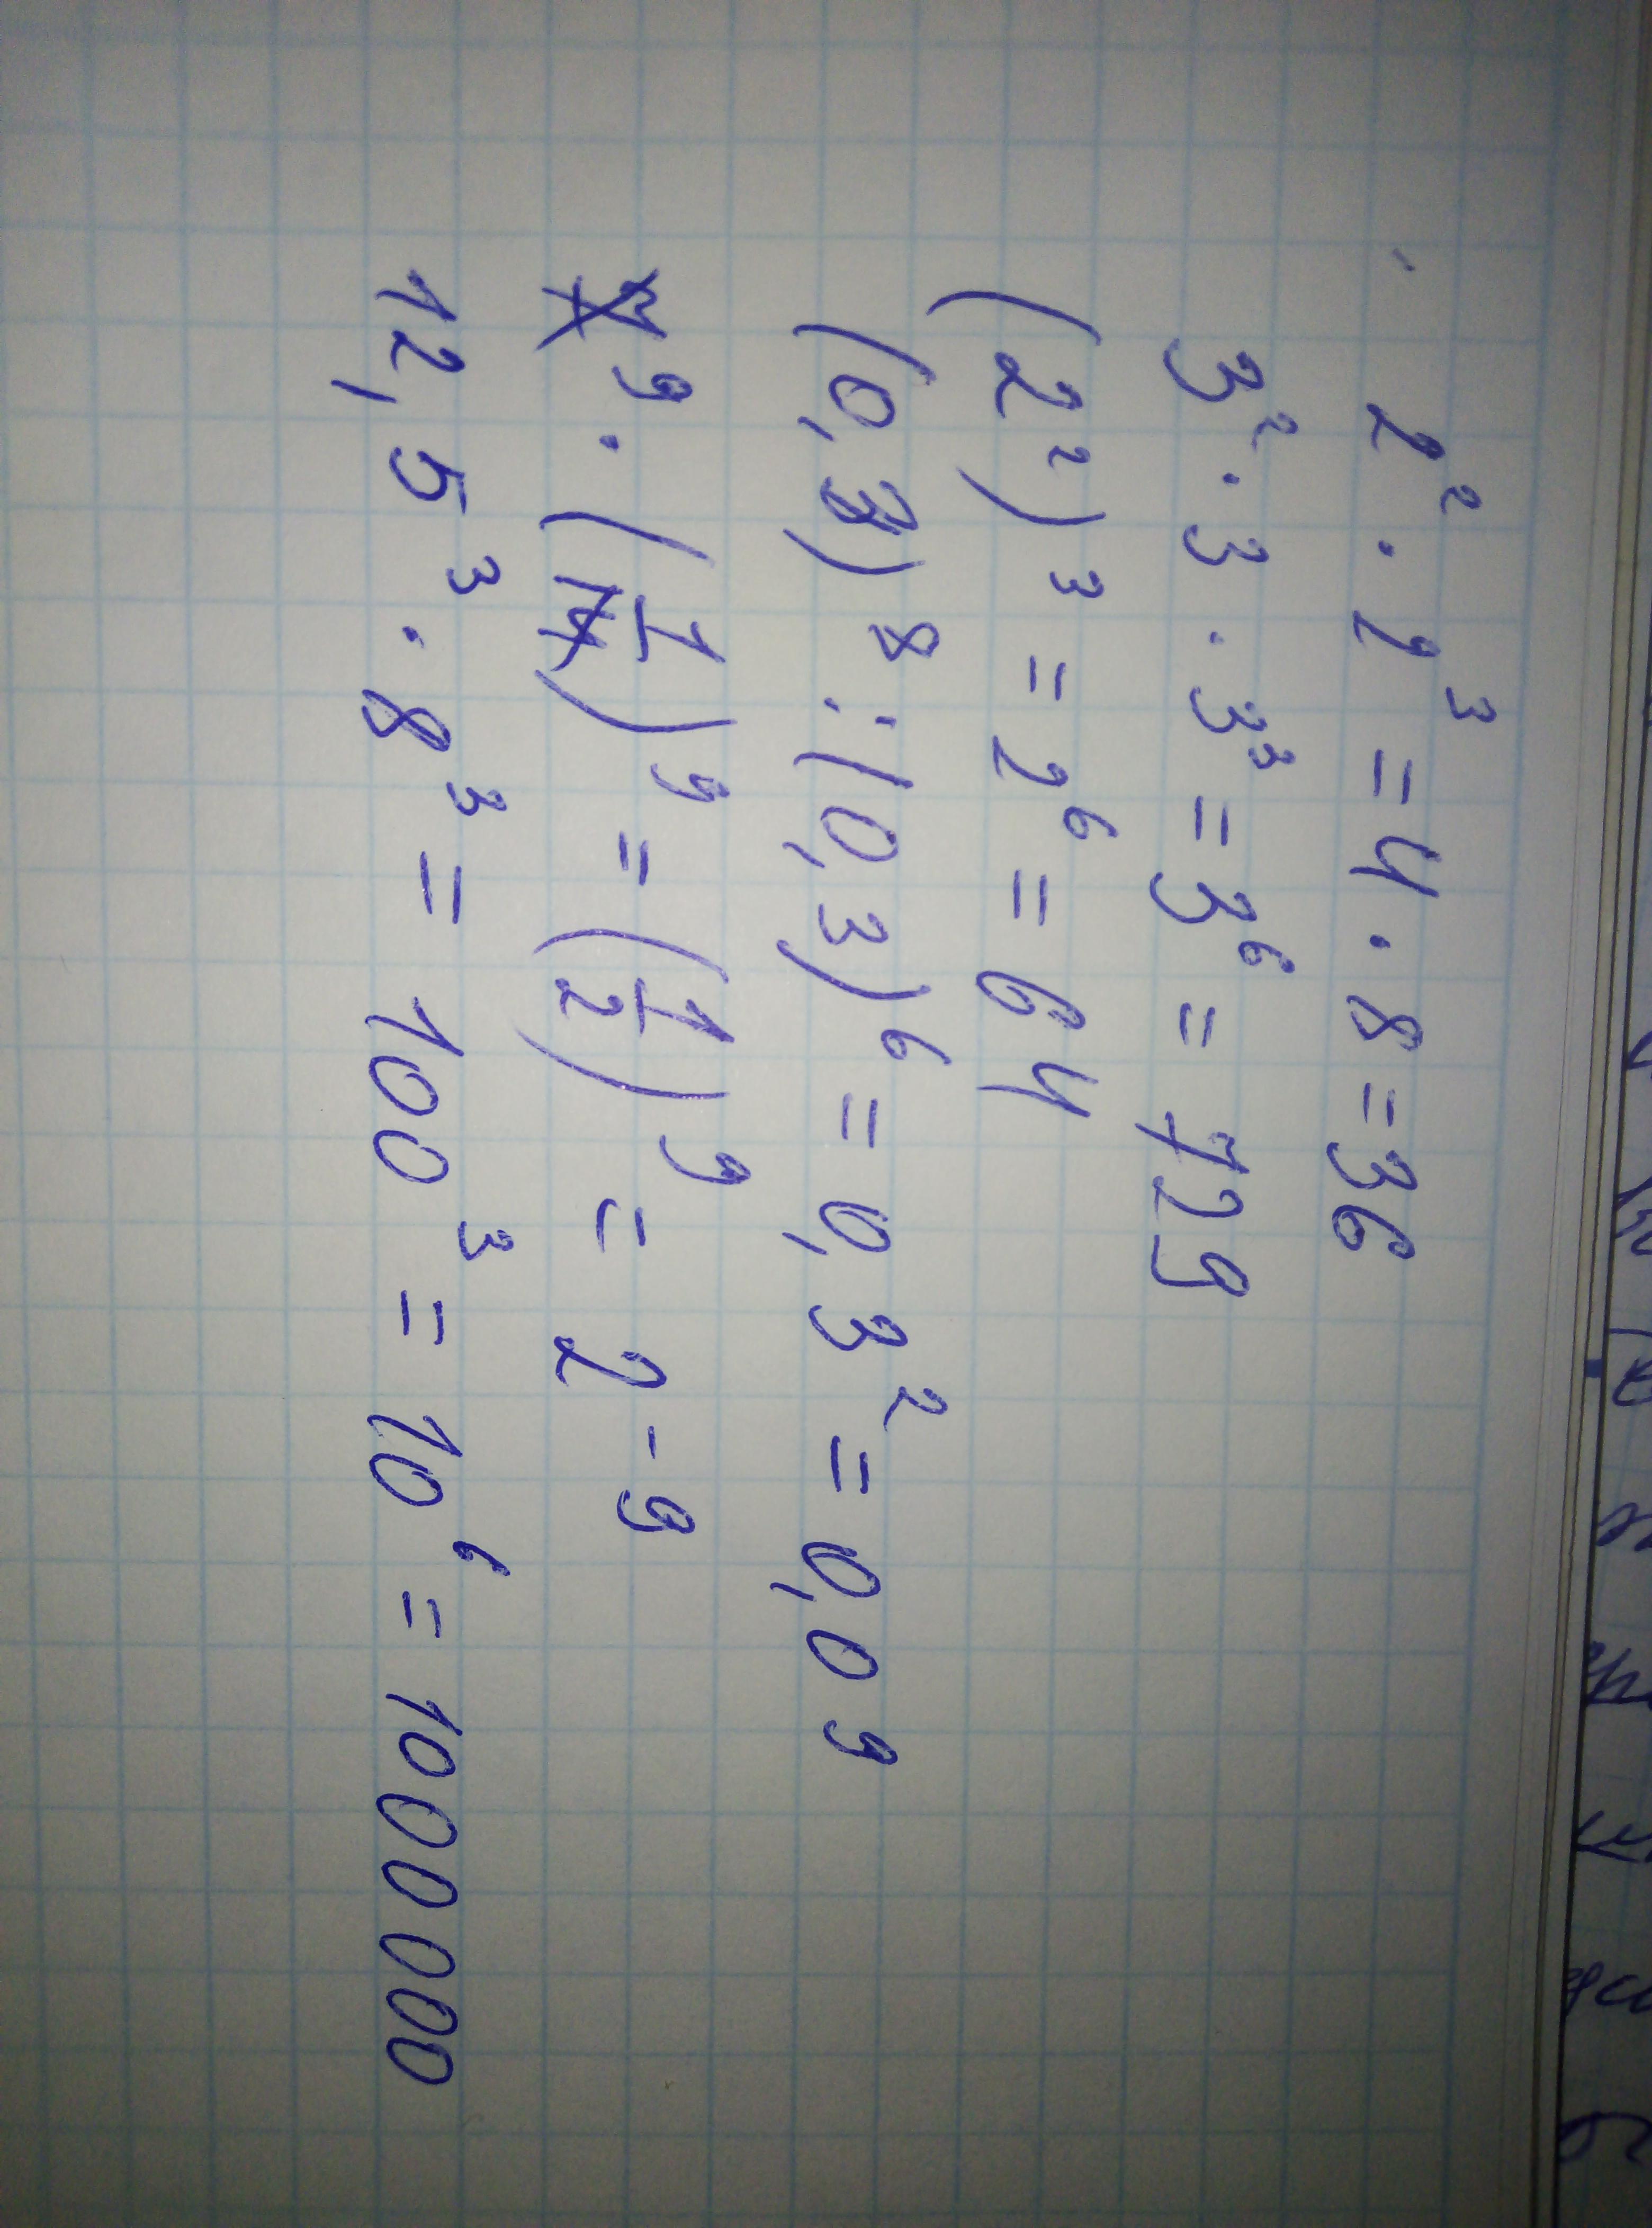 2² · 2³ = 4 · 8 = 36
3² · 3 · 3³ = 3⁶ = 729
(2²)³ = 2⁶ = 64
(0,3)⁸ : (0,3)⁶ = 0,3² = 0,09
7⁹ · (1/14)⁹ = (1/2)⁹ = 2⁻⁹
12,5³ · 8³ = 100³ = 10⁶ = 1000 000